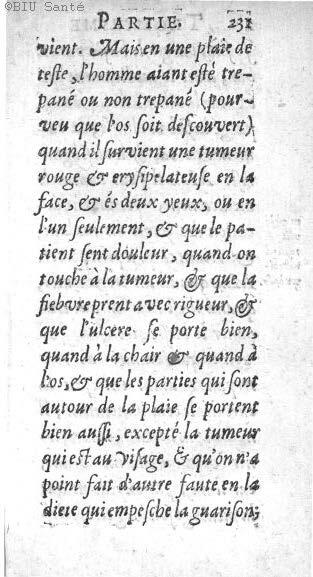 ©BIU Santé
PARTIE. 231
vient. Mais en une plaie de
teste, l'homme aiant esté tre-
pané ou non trepané (pour-
veu que l'os soit descouvert)
quand il survient une tumeur
rouge & erysipelateuse en la
face, & és deux yeux, ou en
l'un seulement, & que le pa-
tient sent douleur, quand on
touche à la tumeur, & que la
fiebvre prent avec rigueur, &
que l'ulcere se porte bien,
quand à la chair & quand à
l'os, & que les parties qui sont
autour de la plaie se portent
bien aussi, excepté la tumeur
qui est au visage, & qu'on n'a
point fait d'autre faute en la
diete qui empesche la guarison;